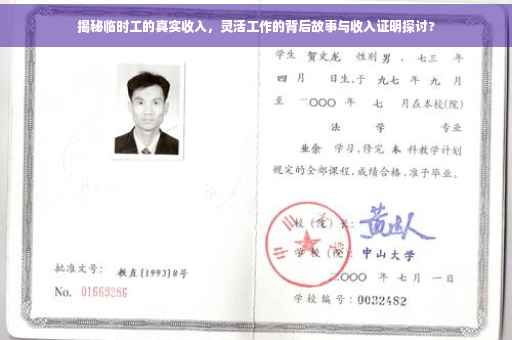 揭秘临时工的真实收入，灵活工作的背后故事与收入证明探讨？
学生 贺文龙 性别 男，七三 年
四 月 日生，于 九七 年 九 月
至 二〇〇〇 年 七 月在本校(院)
法 学 专业
业余 学习，修完 本 科教学计划
规定的全部课程，成绩合格，准予毕业。
校（院）长：
学 校（院）：中山大学
二〇〇〇 年 七 月 一 日
批准文号： 教直[1993]8号
No. 01663286
学校编号：0032482